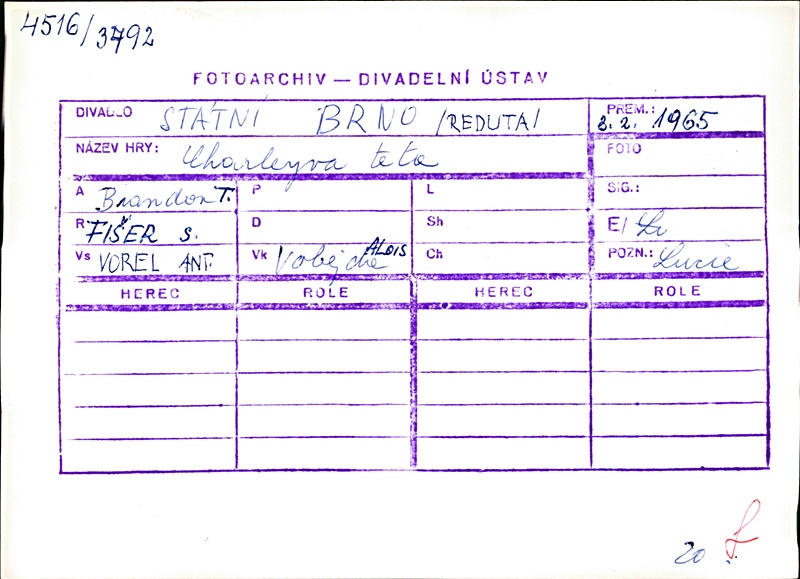 4516/3792
FOTOARCHIV — DIVADELNÍ ÚSTAV
DIVADLO STÁTNÍ BRNO /REDUTA/ PREM.: 8. 2. 1965
NÁZEV HRY: Charleyva teta FOTO
A Brandon T. P L SIG.:
R FIŠER S. D Sh E/
Vs VOREL ANT. Vk ALOIS Ch POZN.: Lucie
HEREC ROLE HEREC ROLE
20